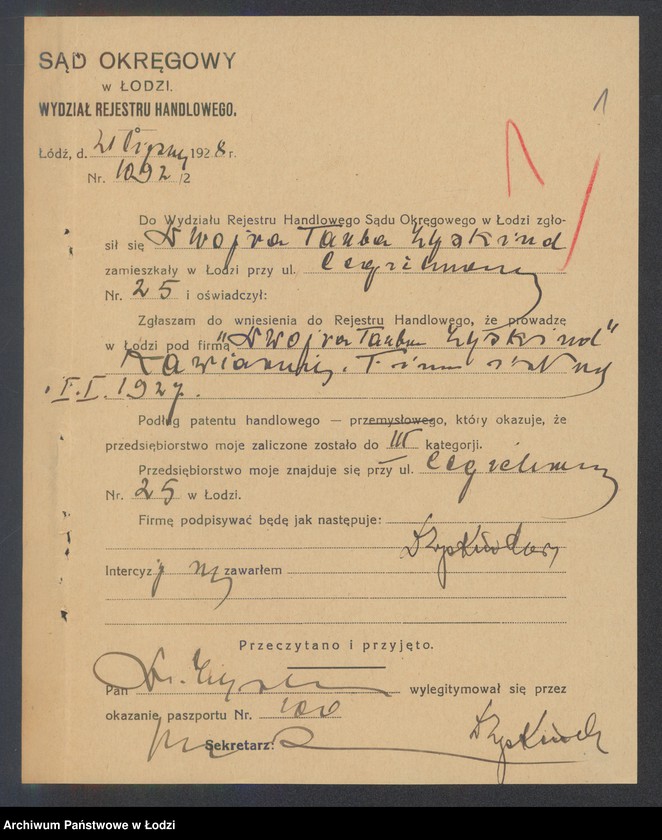 SĄD OKRĘGOWY
w ŁODZI.
WYDZIAŁ REJESTRU HANDLOWEGO.
1
Łódź, d. 21 1928 r.
Nr. 1092/2
Do Wydziału Rejestru Handlowego Sądu Okręgowego w Łodzi zgło-
sił się Dwojra Tauba Łyskind
zamieszkały w Łodzi przy ul. Cegielnianej
Nr. 25 i oświadczył:
Zgłaszam do wniesienia do Rejestru Handlowego, że prowadzę
w Łodzi pod firmą "Dwojra Tauba Łyskind"
Kawiarnię. Firma istnieje
I.I.1927.
Podług patentu handlowego — przemysłowego, który okazuje, że
przedsiębiorstwo moje zaliczone zostało do III kategorji.
Przedsiębiorstwo moje znajduje się przy ul. Cegielnianej
Nr. 25 w Łodzi.
Firmę podpisywać będę jak następuje:
Intercyzy nie zawarłem
Przeczytano i przyjęto.
Pan wylegitymował się przez
okazanie paszportu Nr. 100
Sekretarz:
Archiwum Państwowe w Łodzi